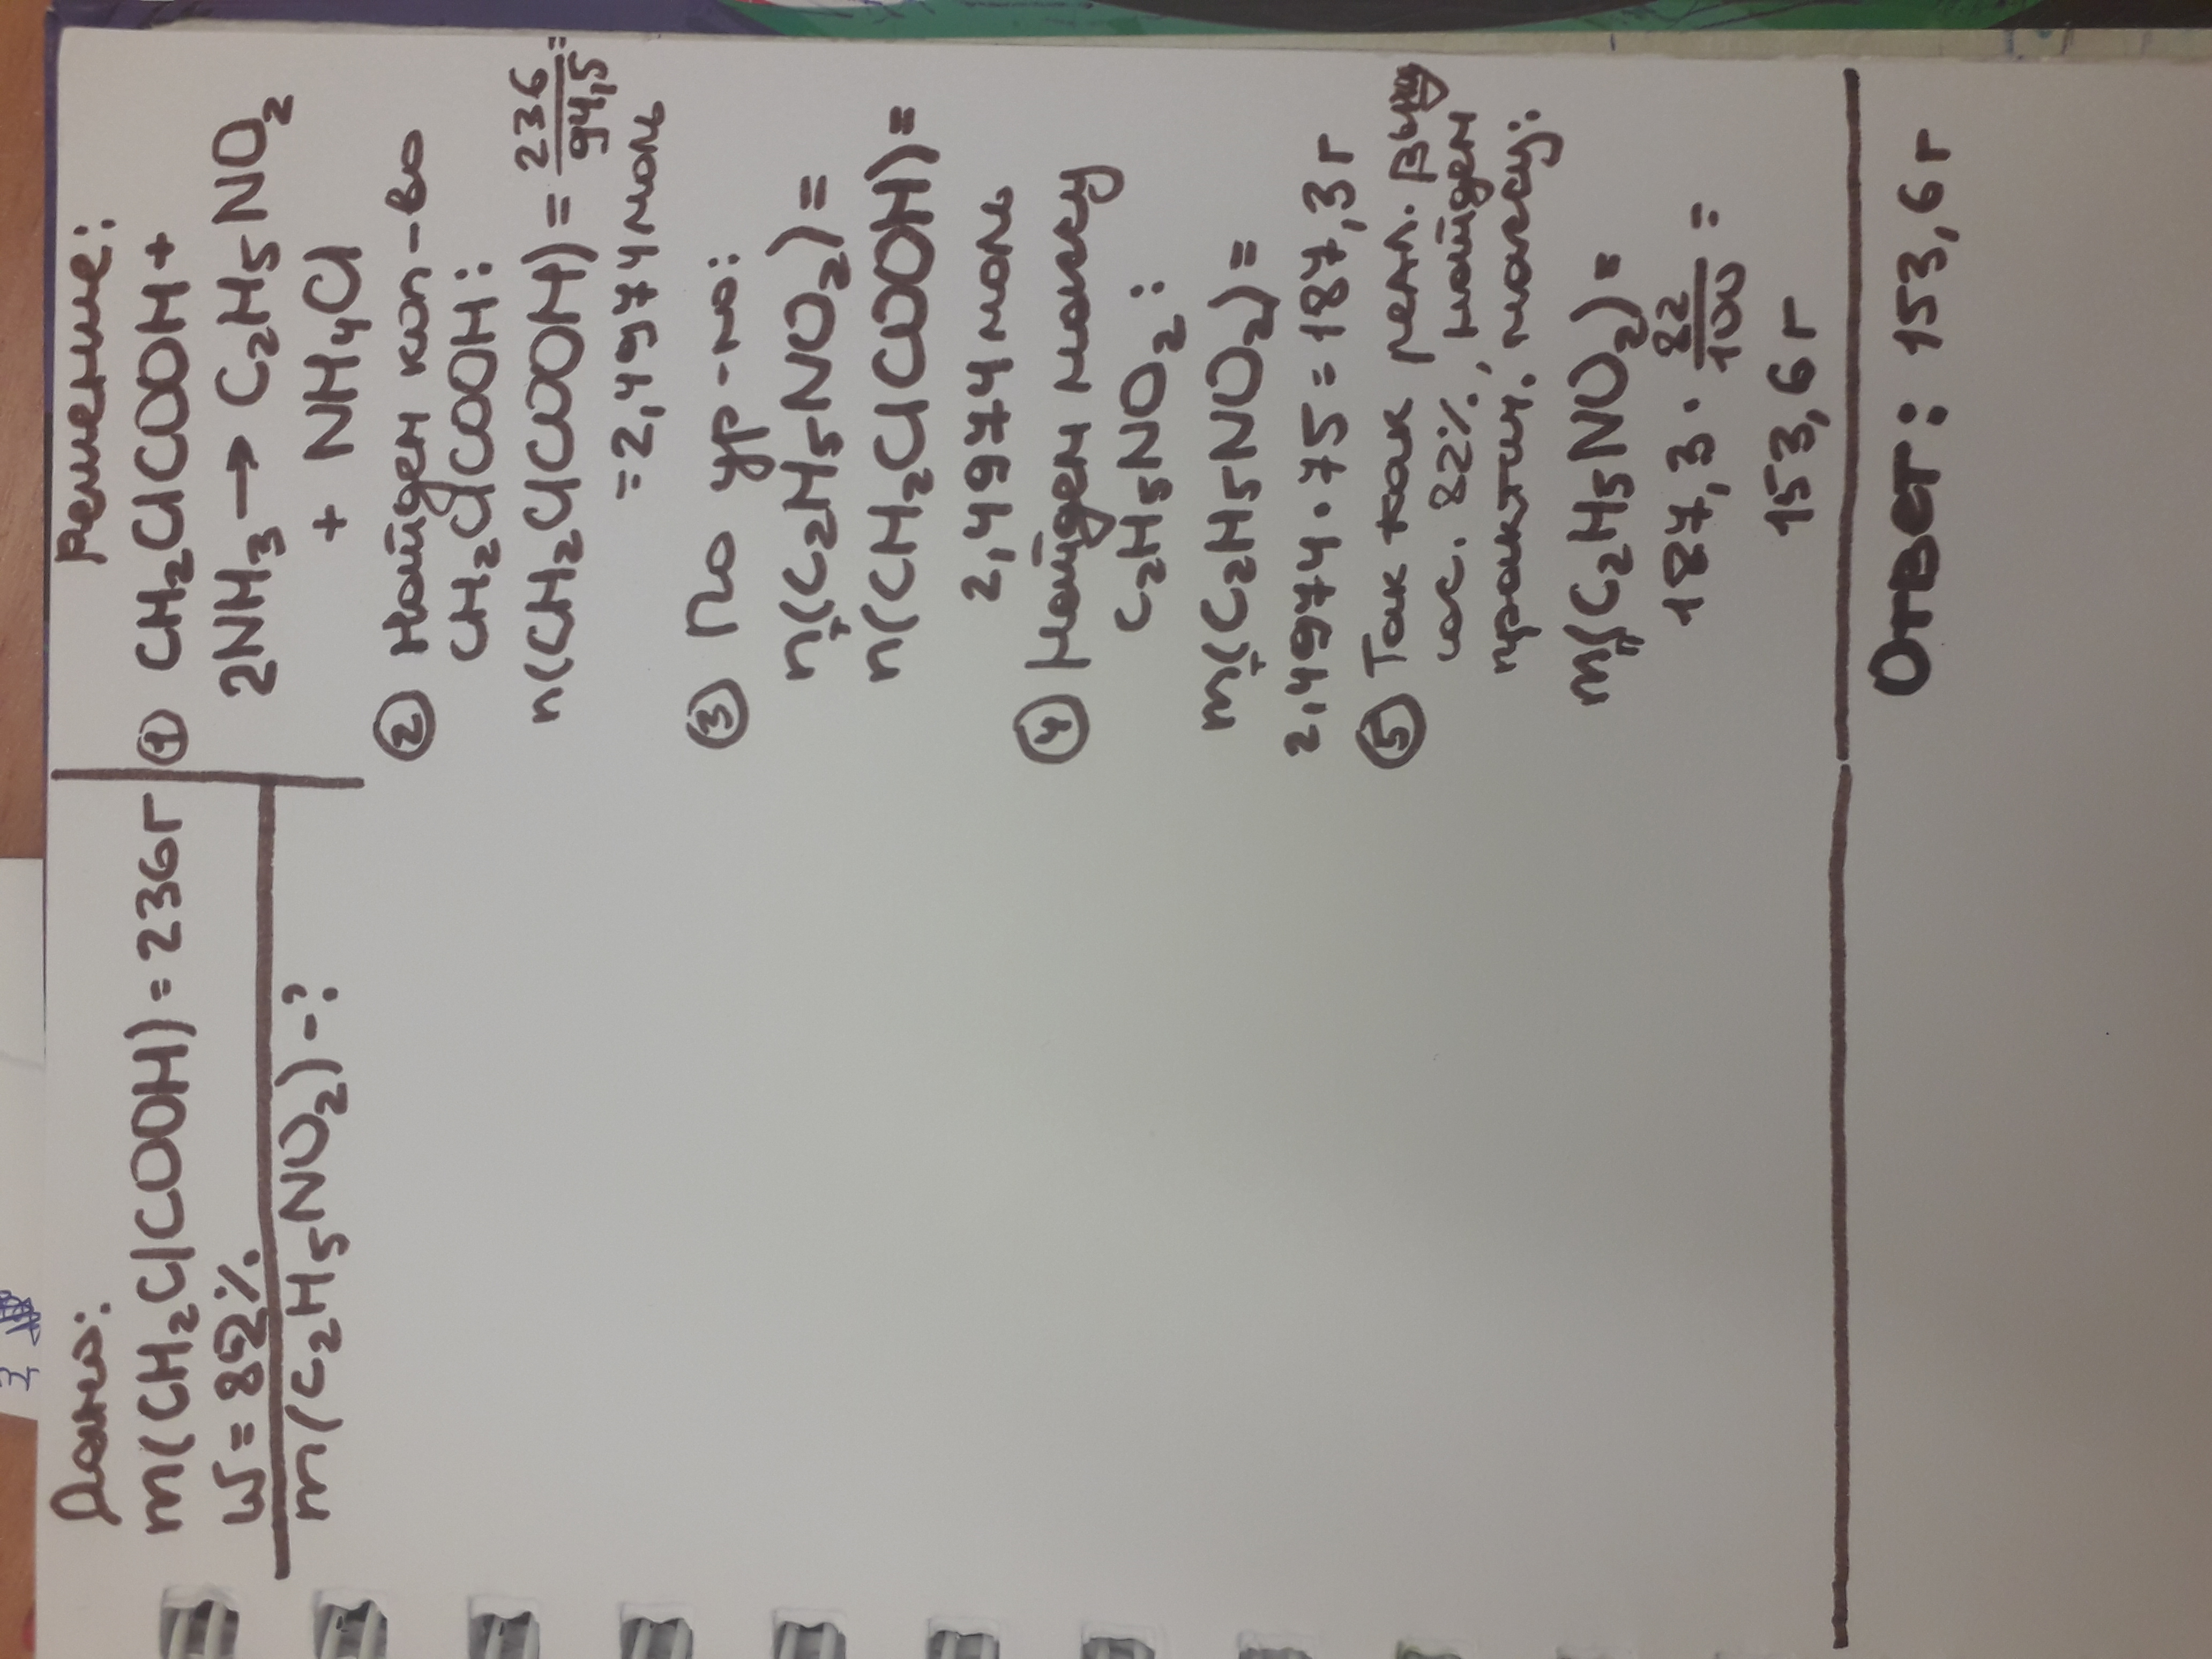 Дано:
m(CH₂ClCOOH) = 236г
W = 82%
m(C₂H₅NO₂) - ?
Решение:
① CH₂ClCOOH +
2NH₃ → C₂H₅NO₂
+ NH₄Cl
② Найдем кол-во
CH₂ClCOOH:
n(CH₂ClCOOH) = 236/94,5 =
= 2,4974 моль
③ По ур-ю:
nт(C₂H₅NO₂) =
n(CH₂ClCOOH) =
2,4974 моль
④ Найдем массу
C₂H₅NO₂:
mт(C₂H₅NO₂) =
2,4974 · 75 = 187,3г
⑤ Так как реал.
ис. 82%, найдем
практич. массу:
mп(C₂H₅NO₂) =
187,3 · 82/100 =
153,6г
Ответ: 153,6г